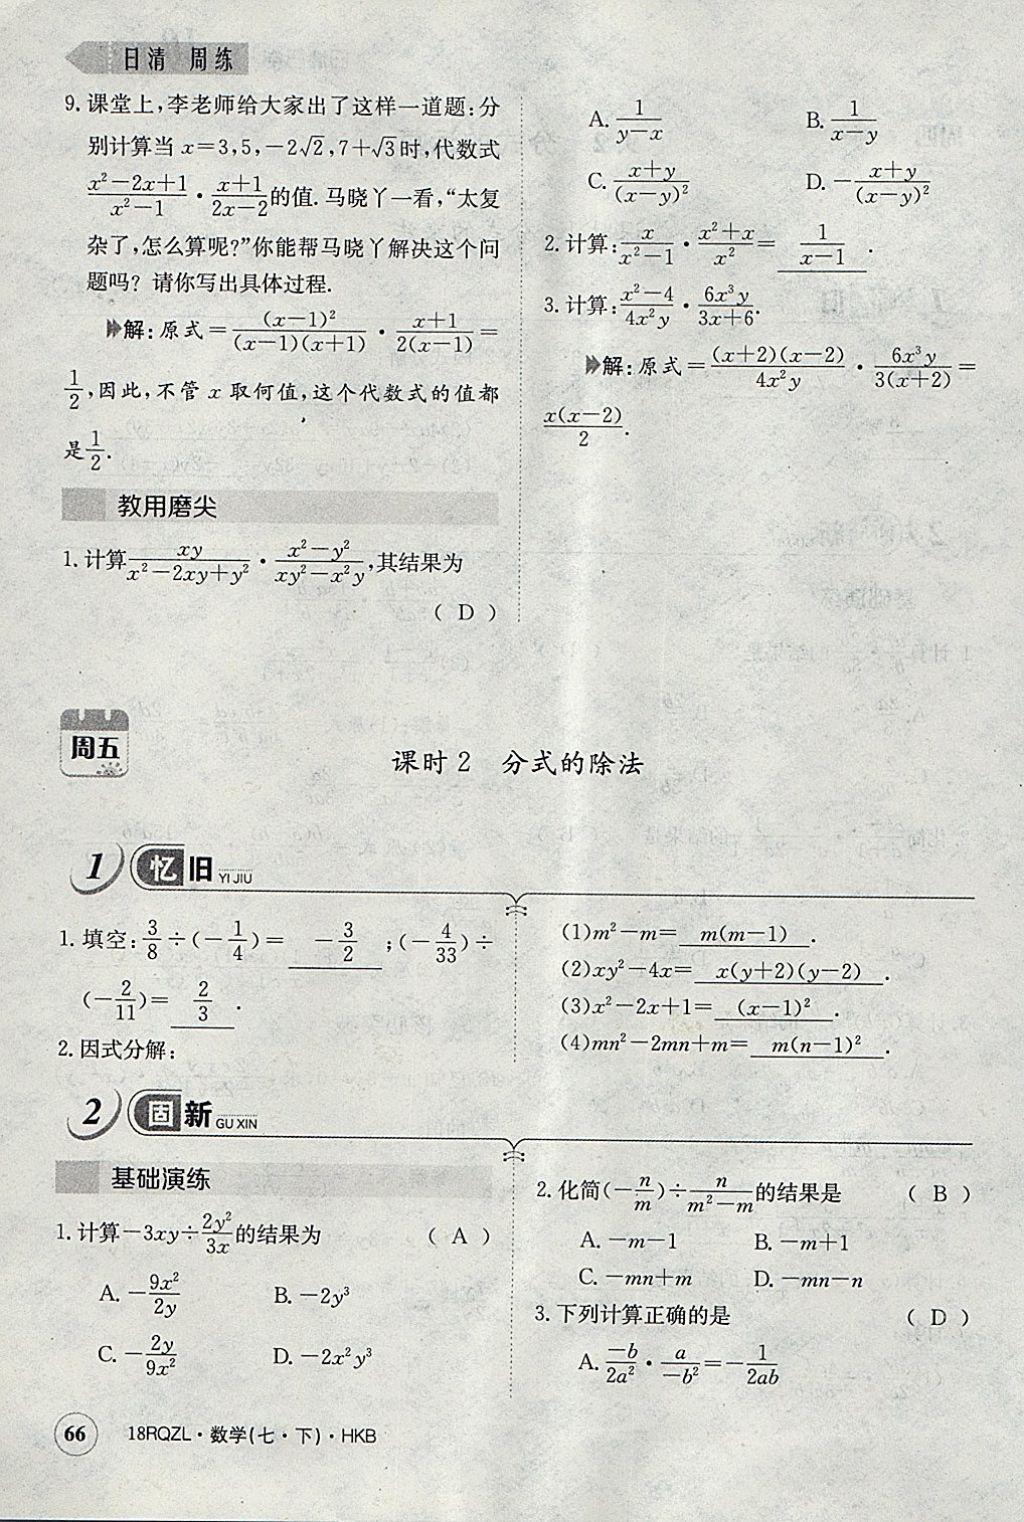 日清 周练
9. 课堂上,李老师给大家出了这样一道题:分
别计算当 x=3,5,-2√2,7+√3时,代数式
(x²-2x+1)/(x²-1)·(x+1)/(2x-2)的值. 马晓丫一看,“太复
杂了,怎么算呢?”你能帮马晓丫解决这个问
题吗? 请你写出具体过程.
解:原式=(x-1)²/((x-1)(x+1))·(x+1)/(2(x-1))=
1/2,因此,不管 x 取何值,这个代数式的值都
是1/2.
教用磨尖
1. 计算xy/(x²-2xy+y²)·(x²-y²)/(xy²-x²y),其结果为
( D )
A. 1/(y-x) B. 1/(x-y)
C. (x+y)/(x-y)² D. -(x+y)/(x-y)²
2. 计算:x/(x²-1)·(x²+x)/x²= 1/(x-1) .
3. 计算:(x²-4)/(4x²y)·6x³y/(3x+6).
解:原式=(x+2)(x-2)/(4x²y)·6x³y/(3(x+2))=
x(x-2)/2.
周五
课时2 分式的除法
1 忆旧 YI JIU
1. 填空:3/8÷(-1/4)= -3/2 ;(-4/33)÷
(-2/11)= 2/3 .
2. 因式分解:
(1)m²-m= m(m-1) .
(2)xy²-4x= x(y+2)(y-2) .
(3)x²-2x+1= (x-1)² .
(4)mn²-2mn+m= m(n-1)² .
2 固新 GU XIN
基础演练
1. 计算-3xy÷2y²/3x的结果为 ( A )
A. -9x²/2y B. -2y³
C. -2y/9x² D. -2x²y³
2. 化简(-n/m)÷n/(m²-m)的结果是 ( B )
A. -m-1 B. -m+1
C. -mn+m D. -mn-n
3. 下列计算正确的是 ( D )
A. -b/2a²·a/-b²=-1/2ab
66 18RQZL·数学(七·下)·HKB